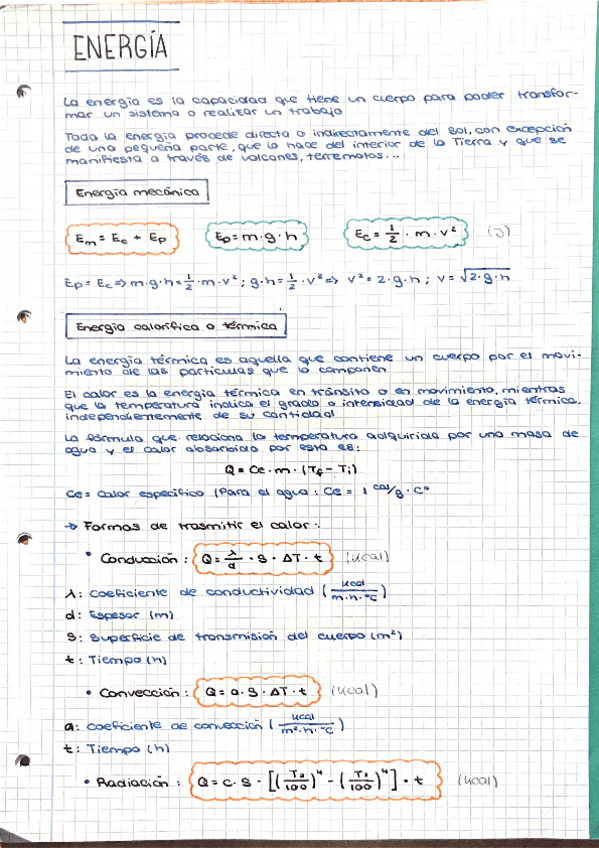 ENERGÍA
La energía es la capacidad que tiene un cuerpo para poder transfor-
mar un sistema o realizar un trabajo
Toda la energía procede directa o indirectamente del Sol, con excepción
de una pequeña parte, que la hace del interior de la Tierra y que se
manifiesta a través de volcanes, terremotos...
Energía mecánica
Em = Ec + Ep    Ep = m · g · h    Ec = 1/2 · m · v² (J)
Ep = Ec => m · g · h = 1/2 · m · v² ; g · h = 1/2 · v² => v² = 2 · g · h ; v = √2 · g · h
Energía calorífica o térmica
La energía térmica es aquella que contiene un cuerpo por el movi-
miento de las partículas que lo componen
El calor es la energía térmica en tránsito o en movimiento, mientras
que la temperatura indica el grado o intensidad de la energía térmica,
independientemente de su cantidad
La fórmula que relaciona la temperatura adquirida por una masa de
agua y el calor absorbido por esta es:
Q = Ce · m · (Tf - Ti)
Ce = Calor específico (Para el agua : Ce = 1 cal/g · C°
→ Formas de trasmitir el calor :
• Conducción : Q = λ/d · S · ΔT · t (kcal)
λ : Coeficiente de conductividad ( kcal/m·h·°C )
d : Espesor (m)
S : Superficie de transmisión del cuerpo (m²)
t : Tiempo (h)
• Convección : Q = a · S · ΔT · t (kcal)
a : Coeficiente de convección ( kcal/m²·h·°C )
t : Tiempo (h)
• Radiación : Q = c · S · [(T2/100)⁴ - (T1/100)⁴] · t (kcal)